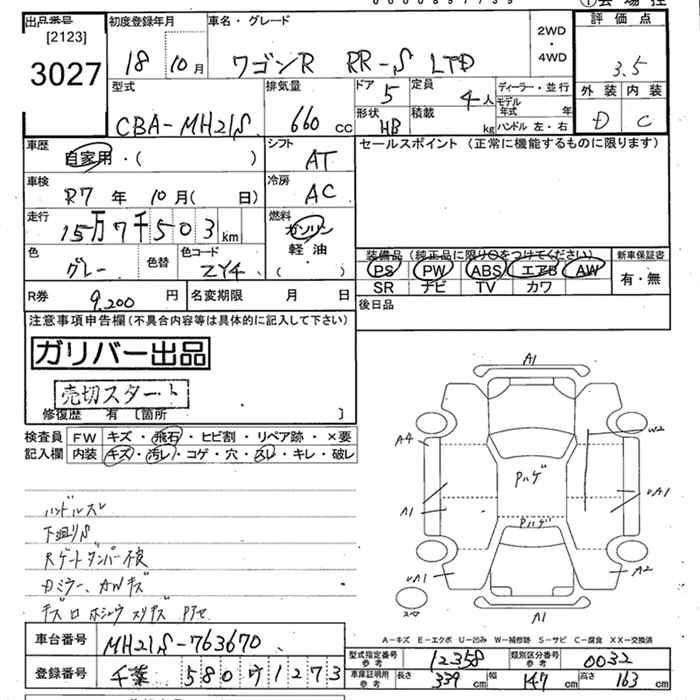 出品番号
[2123]
3027
初度登録年月
18 10月
車名・グレード
ワゴンR RR-S LTD
2WD
・
4WD
評価点
3.5
外装 内装
D C
型式
CBA-MH21S
排気量
660 cc
ドア 5
形状 HB
定員 4人
積載 kg
ディーラー・並行
モデル年式 年
ハンドル 左・右
車歴
自家用・( )
シフト
AT
セールスポイント (正常に機能するものに限ります)
車検
R7年 10月( 日)
冷房
AC
走行
15万7千503 km
燃料
ガソリン
軽油
( ・ )
色 グレー
色替
色コード ZY4
装備品 (純正品に限り○をつけてください)
PS PW ABS エアB AW
SR ナビ TV カワ
新車保証書
有・無
R券 9,200 円
名変期限 月 日
後日品
注意事項申告欄(不具合内容等は具体的に記入して下さい)
ガリバー出品
売切スタート
修復歴 有 [箇所 ]
検査員
記入欄
FW キズ・飛石・ヒビ割・リペア跡・×要
内装 キズ・汚レ・コゲ・穴・スレ・キレ・破レ
ハンドルスレ
下廻りS
Rゲートダンパー不良
Dミラー、AWキズ
A1
A4
W2
Pハゲ
A1
Pハゲ
A2
A1
スペ
A-キズ E-エクボ U-凹み W-補修跡 S-サビ C-腐食 XX-交換済
車台番号 MH21S-763670
登録番号 千葉 580 ワ 1273
型式指定番号 参考 12358
類別区分番号 参考 0032
車庫証明用 参考 長さ 339 cm 幅 147 cm 高さ 163 cm